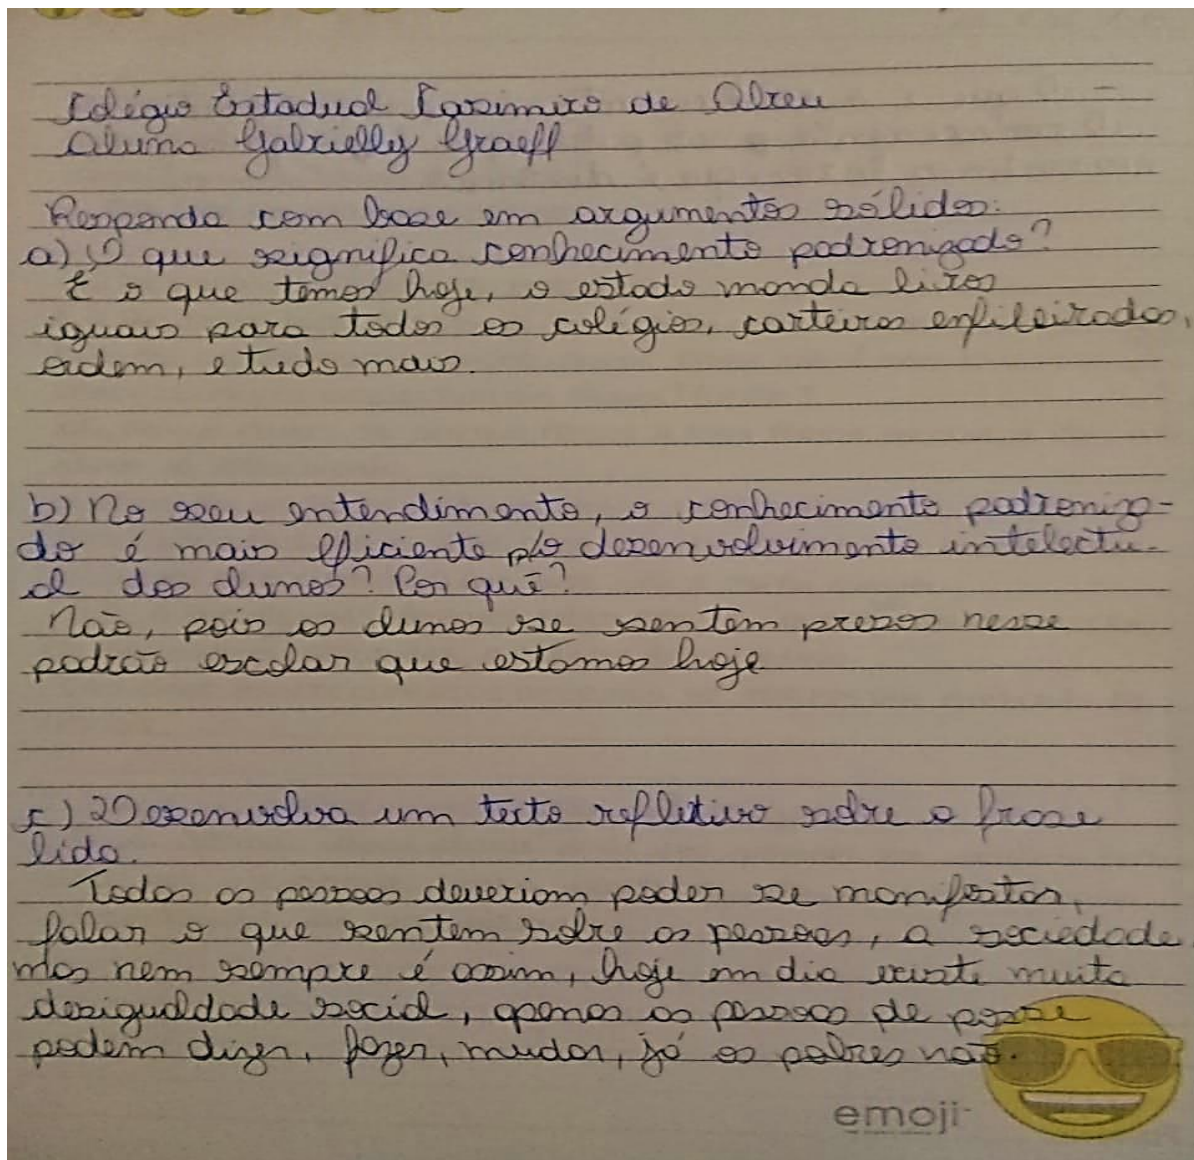 Colégio Estadual Casimiro de Abreu
Aluna Gabrielly Graeff
Responda com base em argumentos sólidos:
a) O que significa conhecimento padronizado?
É o que temos hoje, o estado manda livros
iguais para todos os colégios, carteiras enfileiradas,
ordem, e tudo mais.
b) No seu entendimento, o conhecimento padroniza-
do é mais eficiente p/o desenvolvimento intelectu-
al dos alunos? Por quê?
Não, pois os alunos se sentem presos nesse
padrão escolar que estamos hoje
c) Desenvolva um texto refletivo sobre a frase
lida.
Todas as pessoas deveriam poder se manifestar,
falar o que sentem sobre as pessoas, a sociedade
mas nem sempre é assim, hoje em dia existe muita
desigualdade social, apenas as pessoas de posse
podem dizer, fazer, mudar, já os pobres não.
emoji